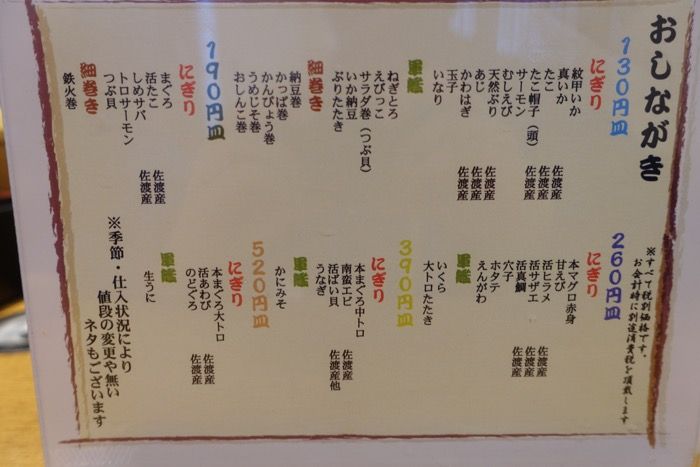 おしながき
130円皿
にぎり
紋甲いか
真いか 佐渡産
たこ
たこ帽子（頭） 佐渡産
サーモン
むしえび
天然ぶり 佐渡産
あじ 佐渡産
かわはぎ 佐渡産
玉子
いなり
軍艦
ねぎとろ
サラダ巻（つぶ貝）
えびっこ
いか納豆
ぶりたたき
細巻き
納豆巻
かっぱ巻
かんぴょう巻
うめじそ巻
おしんこ巻
190円皿
にぎり
まぐろ
活たこ 佐渡産
しめサバ 佐渡産
トロサーモン
つぶ貝
細巻き
鉄火巻
※すべて税別価格です。
お会計時に別途消費税を頂戴します
260円皿
にぎり
本マグロ赤身
甘えび
活ヒラメ 佐渡産
活サザエ 佐渡産
活真鯛 佐渡産
穴子
ホタテ
えんがわ
軍艦
いくら
大トロたたき
390円皿
にぎり
本まぐろ中トロ
南蛮エビ 佐渡産
活ばい貝 佐渡産他
うなぎ
軍艦
かにみそ
520円皿
にぎり
本まぐろ大トロ
活あわび 佐渡産
のどぐろ 佐渡産
軍艦
生うに
※季節・仕入状況により
値段の変更や無い
ネタもございます